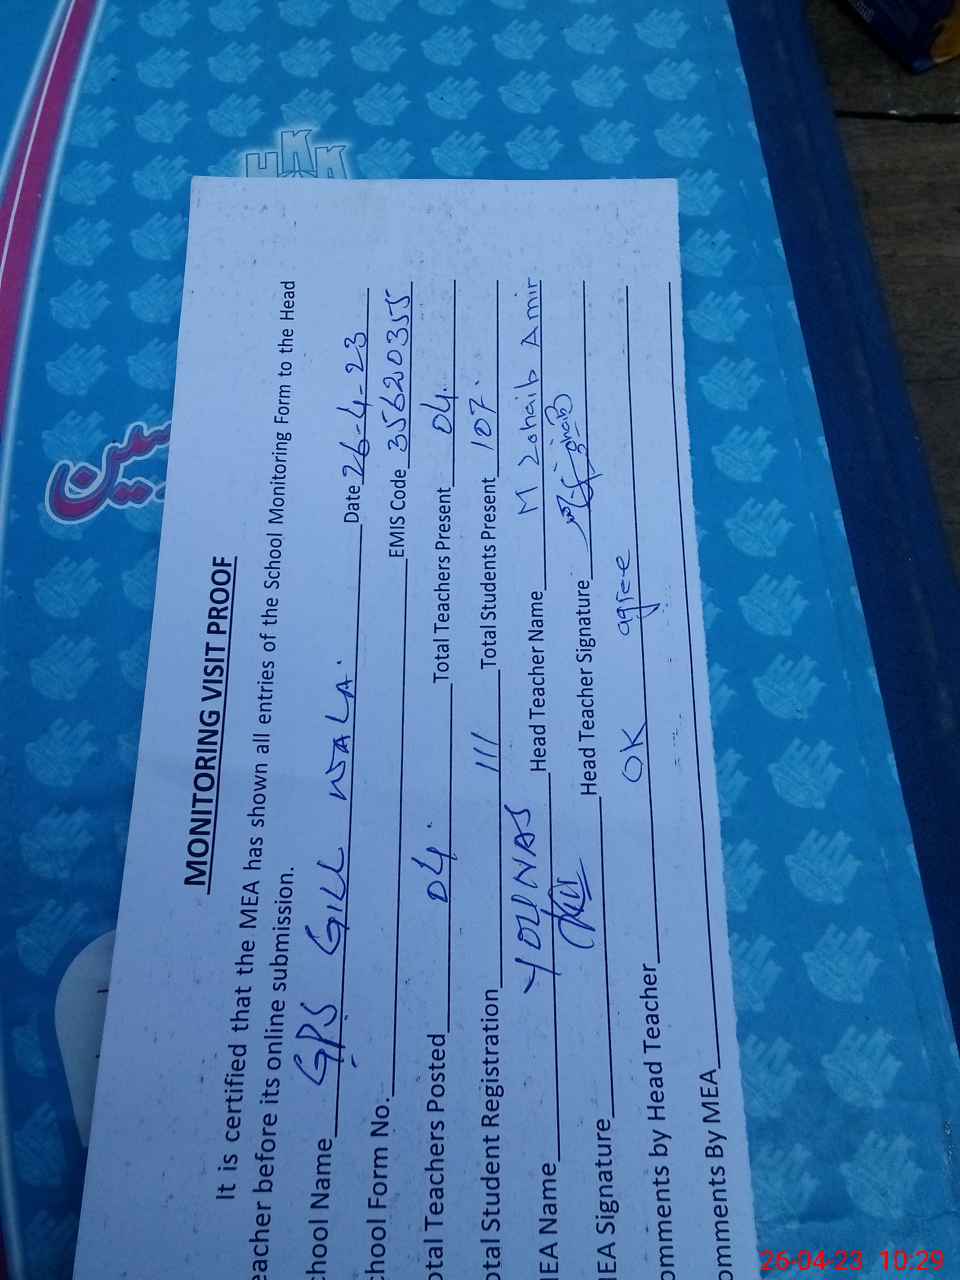 MONITORING VISIT PROOF
It is certified that the MEA has shown all entries of the School Monitoring Form to the Head
eacher before its online submission.
chool Name GPS GILL WALA. Date 26-4-23
chool Form No. EMIS Code 35620355
otal Teachers Posted 04. Total Teachers Present 04.
otal Student Registration 111 Total Students Present 107.
IEA Name YOUNAS Head Teacher Name M Zohaib Amir
IEA Signature Head Teacher Signature
omments by Head Teacher OK agree
omments By MEA
26-04-23 10:29